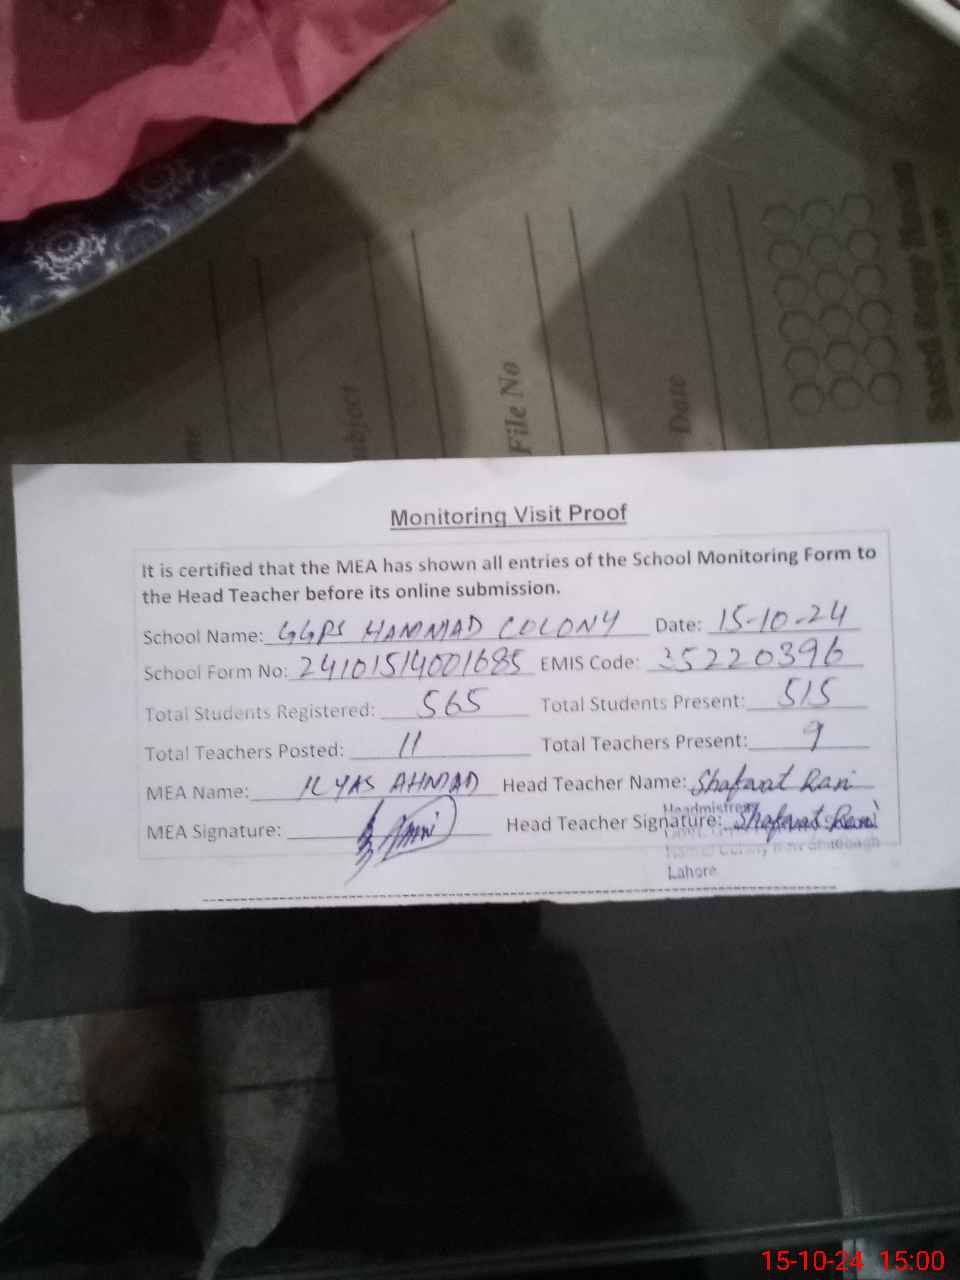 File No
Date
Monitoring Visit Proof
It is certified that the MEA has shown all entries of the School Monitoring Form to
the Head Teacher before its online submission.
School Name: GGPS HAMMAD COLONY Date: 15-10-24
School Form No: 24101514001685 EMIS Code: 35220396
Total Students Registered: 565 Total Students Present: 515
Total Teachers Posted: 11 Total Teachers Present: 9
MEA Name: ILYAS AHMAD Head Teacher Name: Shafaat Rani
MEA Signature: Head Teacher Signature: Shafaat Rani
Headmistress
Lahore
15-10-24 15:00